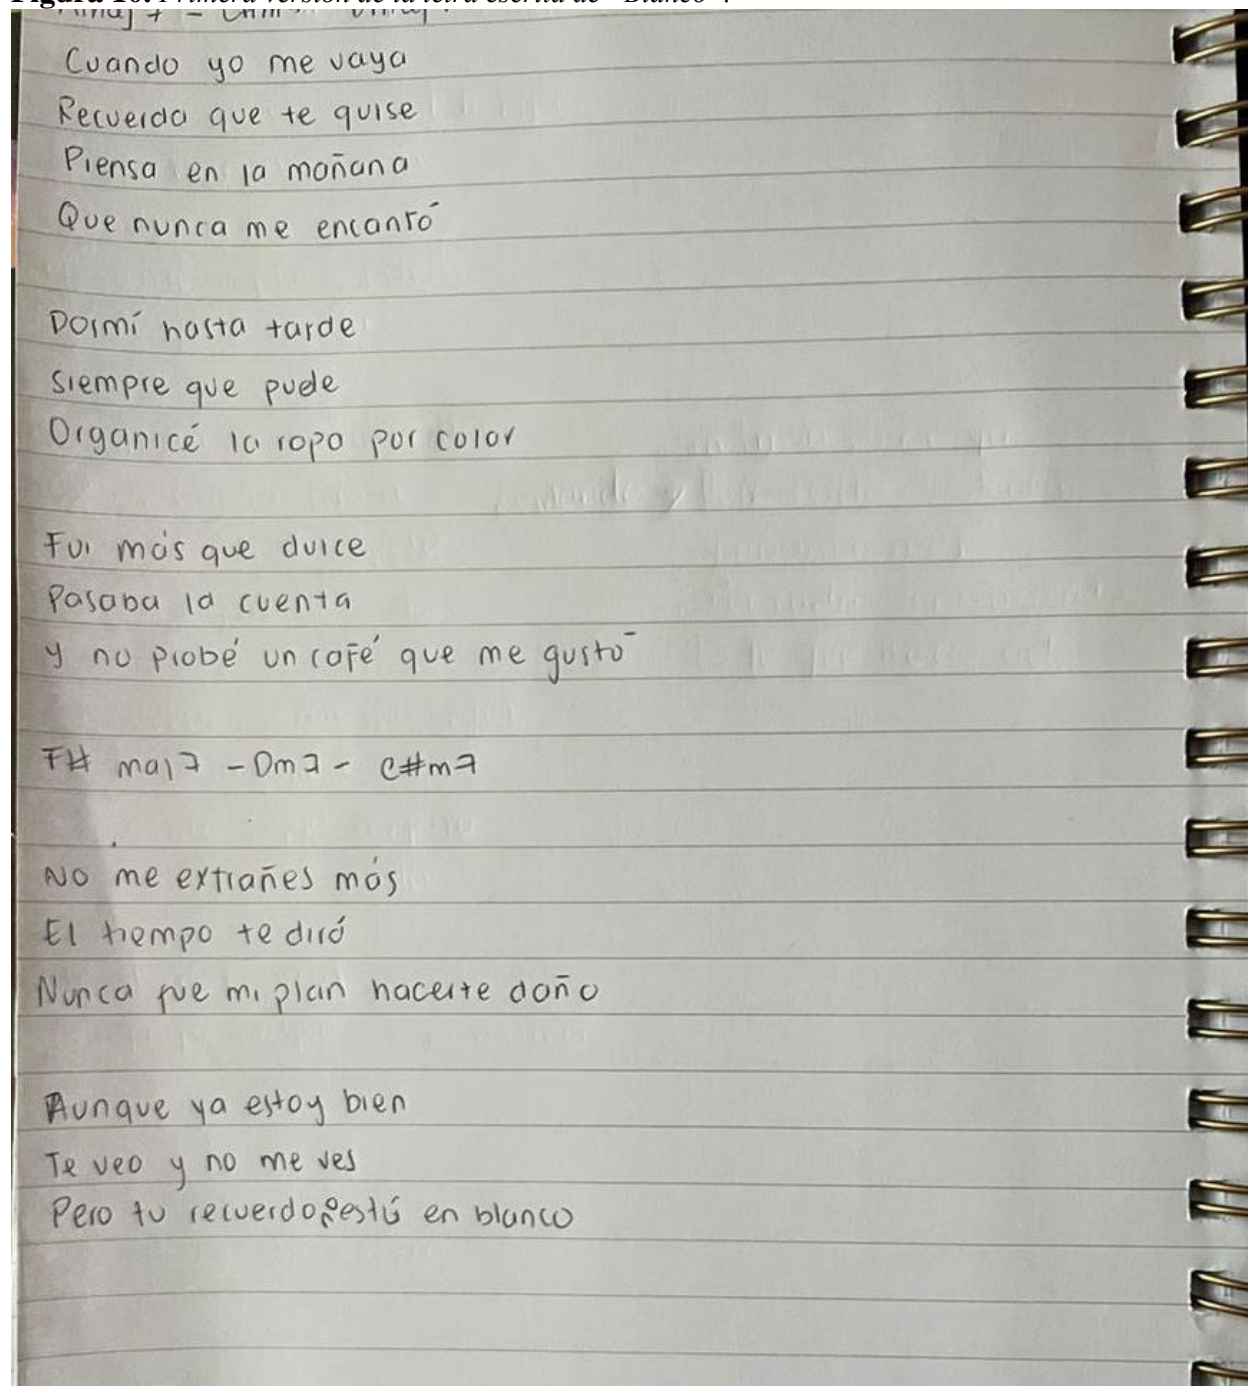 Cuando yo me vaya
Recuerda que te quise
Piensa en la mañana
Que nunca me encantó
Dormí hasta tarde
siempre que pude
Organicé la ropa por color
Fui más que dulce
Pasaba la cuenta
y no probé un café que me gustó
F# maj7 - Dm7 - C#m7
No me extrañes más
El tiempo te dirá
Nunca fue mi plan hacerte daño
Aunque ya estoy bien
Te veo y no me ves
Pero tu recuerdo está en blanco